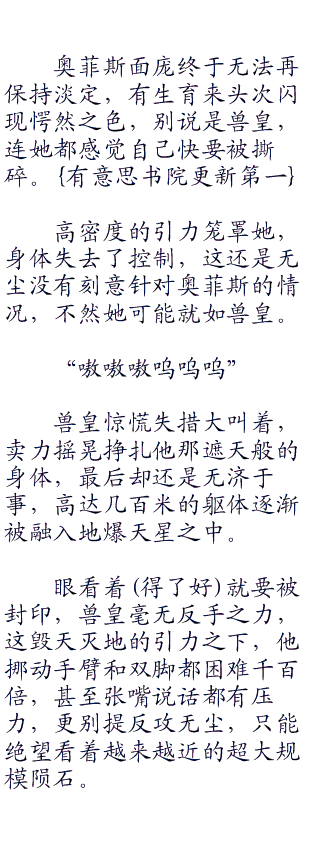 奥菲斯面庞终于无法再
保持淡定，有生育来头次闪
现愕然之色，别说是兽皇，
连她都感觉自己快要被撕
碎。{有意思书院更新第一}
高密度的引力笼罩她，
身体失去了控制，这还是无
尘没有刻意针对奥菲斯的情
况，不然她可能就如兽皇。
“嗷嗷嗷呜呜呜”
兽皇惊慌失措大叫着，
卖力摇晃挣扎他那遮天般的
身体，最后却还是无济于
事，高达几百米的躯体逐渐
被融入地爆天星之中。
眼看着(得了好)就要被
封印，兽皇毫无反手之力，
这毁天灭地的引力之下，他
挪动手臂和双脚都困难千百
倍，甚至张嘴说话都有压
力，更别提反攻无尘，只能
绝望看着越来越近的超大规
模陨石。